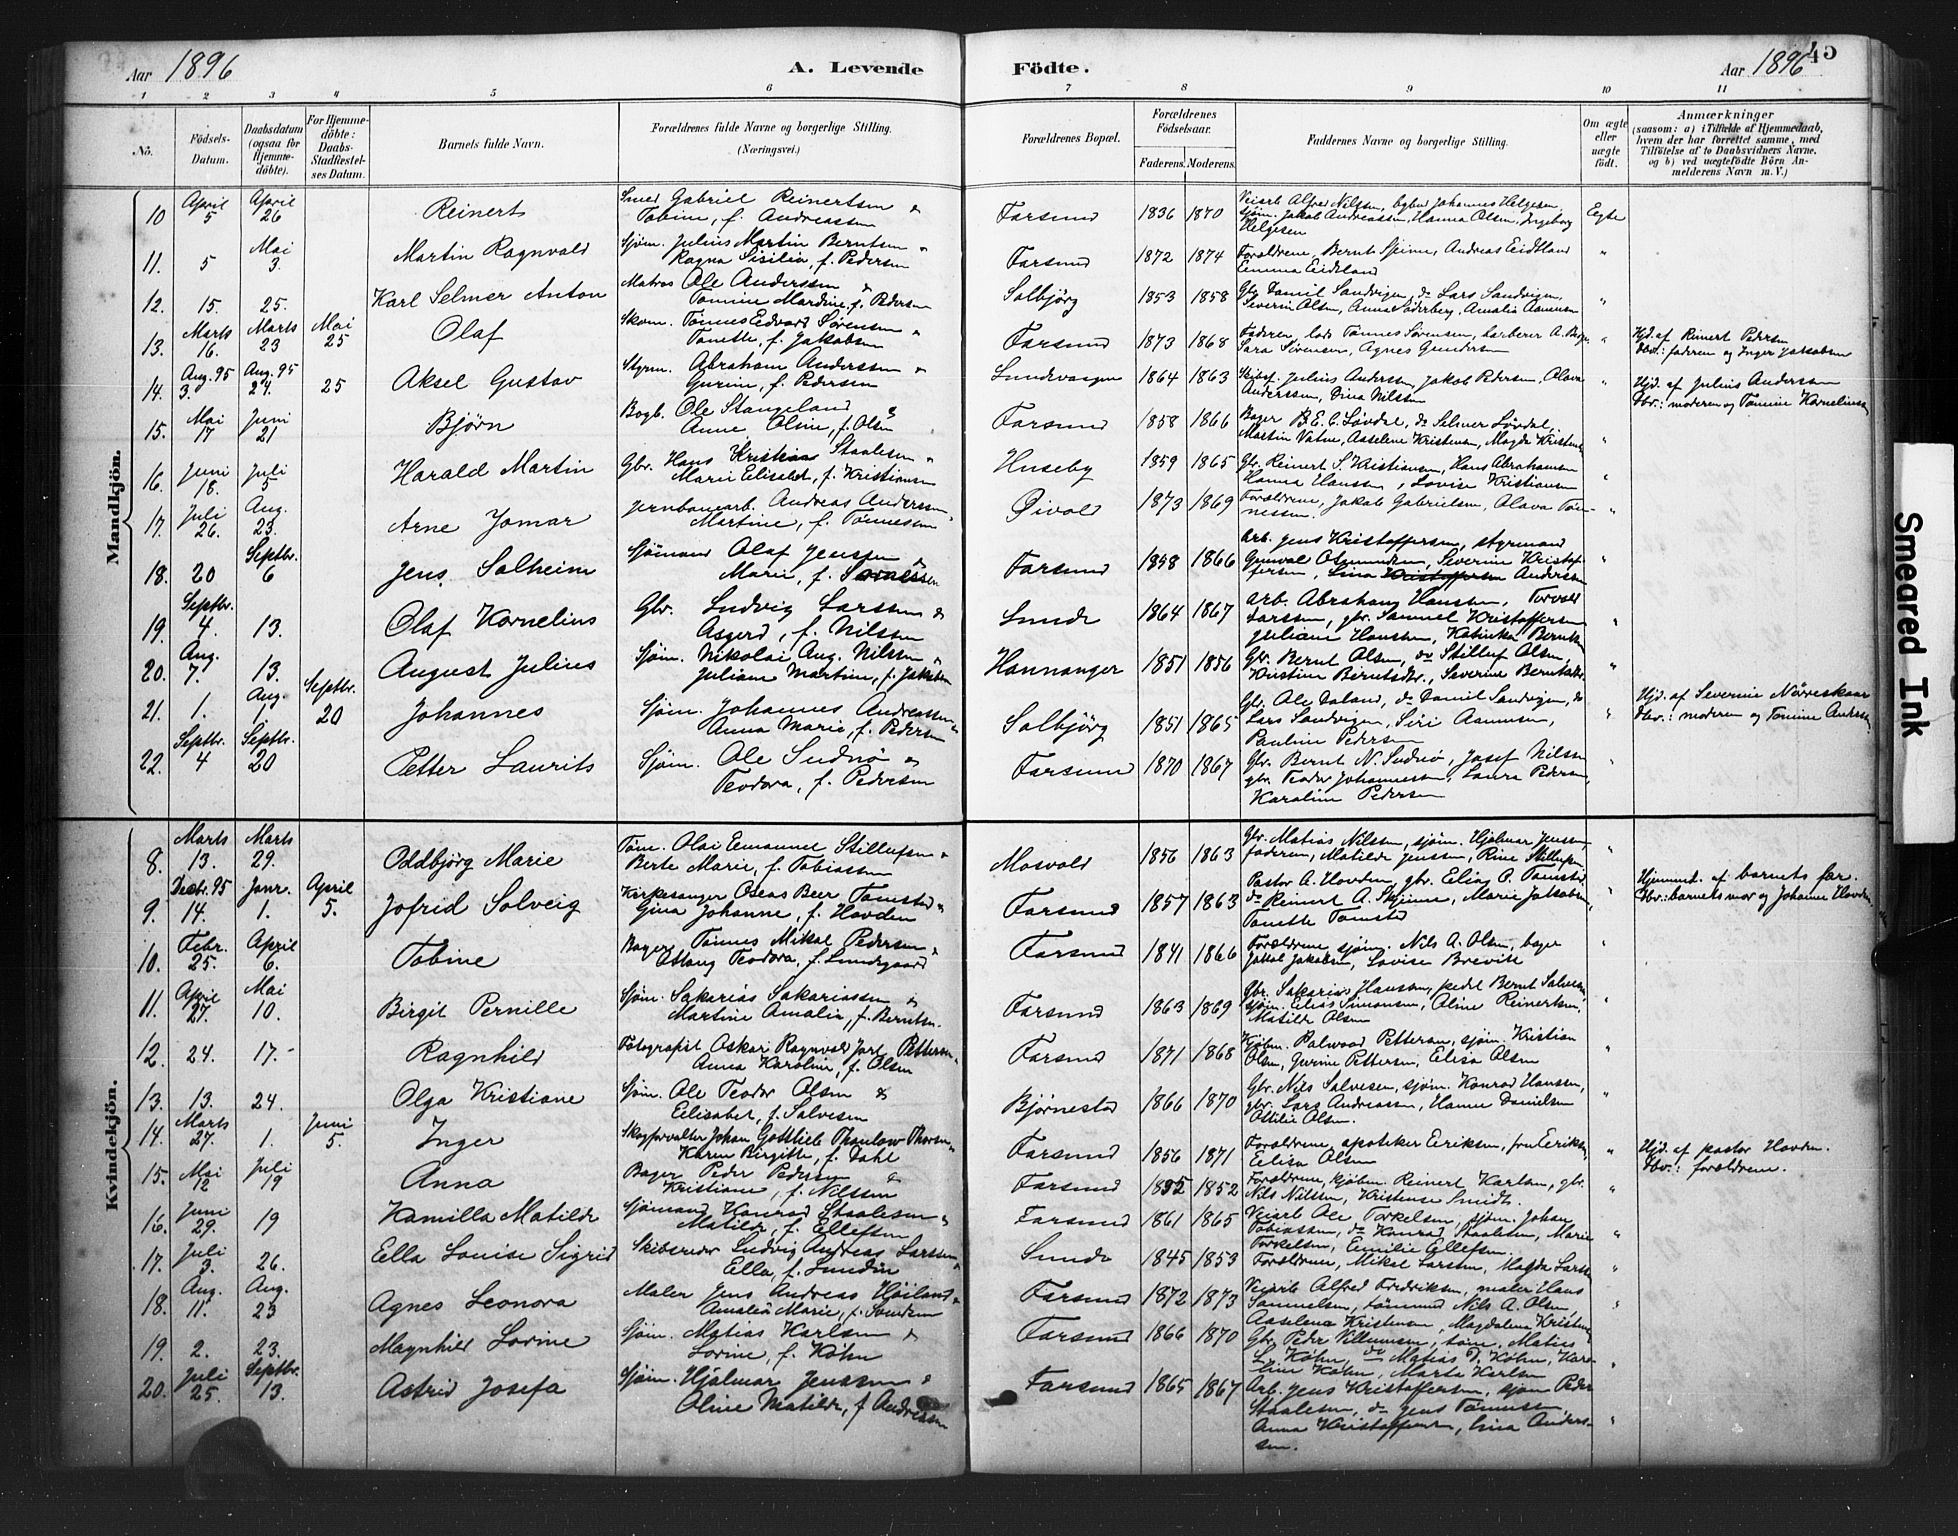 Aar 1896
A. Levende
Födte.
Aar 1896
45
1 2 3 4 5 6 7 8 9 10 11
No.
Födsels-Datum.
Daabsdatum (ogsaa for Hjemmedöbte).
For Hjemmedöbte: Daabs-Stadfæstelses Datum.
Barnets fulde Navn.
Forældrenes fulde Navne og borgerlige Stilling.
(Næringsvei.)
Forældrenes Bopæl.
Forældrenes Födselsaar.
Faderens. Moderens.
Faddernes Navne og borgerlige Stilling.
Om ægte eller uægte födt.
Anmærkninger
(saasom: a) i Tilfælde af Hjemmedaab, hvem der har forrettet samme, med Tilföielse af to Daabsvidners Navne, og b) ved uægtefödte Börn Anmelderens Navn m. V.)
Mandkjön.
10 April 5 April 26 Reinert Smed Gabriel Reinertsen & Tobine, f. Andreassen Farsund 1836 1870 Veiarb Alfred Nilsen, Johannes Helgesen, sjøm. Jakob Andreassen, Hanna Olsen, Ingeborg Helgesen Egte
11. 5 Mai 3. Martin Ragnvald Sjøm. Julius Martin Berntsen & Ragna Sisilia, f. Pedersen Farsund 1872 1874 Forældrene, Bernt Andreas Eidsland Emma Eidsland "
12. 15. 25. Karl Selmer Anton Matros Ole Anderssen & Tomine Mardine, f. Pedersen Salbjørg 1853 1858 Gbr. Daniel Sandvigen, do Lars Sandvigen, Severin Olsen, Anna Söderberg, Amalia Aanensen "
13. Marts 16. Marts 23 Mai 25 Olaf Skom. Tønnes Edvard Sørensen & Tonette, f. Jakobsen Farsund 1873 1868 Faderen, lods Tönnes Sørensen, barberer A. Sara Sörensen, Agnes Gundersen " Hjd. af Reinert Pedersen Dbv.: faderen og Inger Jakobsen
14. Aug. 95 3. Aug. 95 24. 25 Aksel Gustav Styrm. Abraham Anderssen & Gurine, f. Pedersen Lundevaagen 1864 1863 Skibsf. Julius Anderssen, Jakob Pedersen, Olava Anderssen, Dina Nilssen " Hjd. af Julius Anderssen Dbv.: moderen og Tomine Kornelius
15. Mai 17 Juni 21 Bjørn Bogb. Ole Stangeland & Anne Oline, f. Olsen Farsund 1858 1866 Bager B. E. C. Løvdal, do Selmer Løvdal, Martin Vatne, Aaselene Kristensen, Magda Kristensen "
16. Juni 18. Juli 5 Harald Martin Gbr. Hans Kristian Staalesen & Marie Elisabet, f. Kristiansen Huseby 1859 1865 Gbr. Reinert S. Kristiansen, Hans Abrahamsen Hanna Hanssen, Lovise Kristiansen "
17. Juli 26. Aug. 23. Arne Jomar Jernbanearb. Andreas Anderssen & Martine, f. Tönnessen Øivold 1873 1869 Forældrene, Jakob Gabrielsen, Olava Tönnessen. "
18. 20 Septbr. 6 Jens Solheim Sjömand Olaf Jenssen & Marie, f. Farsund 1858 1866 Arb. Jens Kristoffersen, styrmand Gunvald Osmundsen, Severine Kristoffersen, Lina Kristoffersen Anderssen "
19. Septbr. 4. 13. Olaf Kornelius Gbr. Ludvig Larssen & Asgerd, f. Nilssen Lunde 1864 1867 Arb. Abraham Hanssen, Torvald Larssen, gbr. Samuel Kristoffersen Juliane Hanssen, Katinka Berntsen "
20. Aug. 7. 13. August Julius Sjøm. Nikolai Aug. Nilssen & Juliane Martine, f. Jakobsen Hannanger 1851 1856 Gbr. Bernt Olsen, do Stilluf Olsen, Kristine Berntsdtr., Severine Berntsdtr. "
21. 1. Aug. 1. Septbr. 20 Johannes Sjøm. Johannes Andreassen & Anna Marie, f. Pedersen Salbjörg 1851 1865 Gbr. Ole Daland, do Daniel Sandvigen, do Lars Sandvigen, Siri Aanensen, Pauline Pedersen " Hjd. af Severine Nöreskaar Dbv.: moderen og Tomine Anderssen
22. Septbr. 4 Septbr. 20 Petter Laurits Sjøm. Ole Sudnø & Teodora, f. Pedersen Farsund 1870 1867 Gbr. Bernt N. Sudnø, Josef Nilssen gbr. Teodor Johannessen, Laura Pedersen, Karoline Pedersen "
Kvindekjön.
8 Marts 13. Marts 29. Oddbjørg Marie Töm. Olai Emanuel Stillufsen & Berte Marie, f. Tobiassen Mosvold 1856 1863 Gbr. Matias Nilsen, sjøm. Hjalmar Jenssen, faderen, Matilde Jenssen, Rine Stillufsen "
9. Decbr. 95 14. Janr. 1. April 5. Jofrid Solveig Kirkesanger Oseas Beer Tomstad & Gina Johanne, f. Hovden Farsund 1857 1863 Pastor A. Hovden, gbr. Elias P. Tomstad, do Reinert A. Skjinne, Marie Jakobsen, Tonette Tomstad " Hjemmed. af barnets far. Dbv.: barnets mor og Johanne Hovden
10. Febr. 25. April 6. Tobine Bager Tönnes Mikal Pedersen & Otlaug Teodora, f. Lundegaard Farsund 1841 1866 Forældrene, sjøm. Nils A. Olsen, bager Jakob Jakobsen, Lovise Brevik "
11. April 27. Mai 10. Birgit Pernille Sjøm. Sakarias Sakariassen & Martine Amalie, f. Berntsen. Farsund 1863 1869 Gbr. Sakarias Hanssen, pedel Bernt Salvesen, sjøm. Elias Simonsen, Oline Reinertsen, Matilde Olsen "
12. 24. 17. Ragnhild Fotografist Oskar Ragnvald Jarl Pettersen & Anna Karoline, f. Olsen Farsund 1871 1868 Kjøbm. Palwood Pettersen, sjøm. Kristian Olsen, Gurine Pettersen, Elisa Olsen "
13. 13. 24. Olga Kristiane Sjøm. Ole Teodor Olsen & Elisabet, f. Salvesen Bjørnestad 1866 1870 Gbr. Nils Salvesen, sjøm. Konrad Hanssen, gbr. Lars Andreassen, Hanne Danielsen Ottilie Olsen. "
14. Marts 27. 1. Juni 5. Inger Skogforvalter Johan Gottlieb Thaulow Thorsen & Karen Birgitte, f. Dahl Farsund 1856 1871 Forældrene, apoteker Eriksen, fru Eriksen, Elisa Olsen " Hjd. af pastor Hovden. Dbv.: forældrene.
15. Mai 12 Juli 19 Anna Bager Peder Pedersen & Kristiane, f. Nilssen Farsund 1852 1852 Forældrene, kjøbm. Reinert Karlsen, gbr. Nils Nilssen, Kristense Smidt. "
16. Juni 29. 19 Kamilla Matilde Sjømand Konrad Staalesen & Matilde, f. Ellefsen Farsund 1861 1865 Veiarb Ole Torkelsen, sjøm. Johan Tobiassen, do Konrad Staalesen, Marie Torkelsen, Emilie Ellefsen. "
17. Juli 3. 26. Ella Louise Sigrid Skibsreder Ludvig Andreas Larssen & Ella, f. Lundin Lunde 1845 1853 Forældrene, Mikal Larssen, Magda Larssen "
18. Aug. 11. Aug. 23 Agnes Leonora Maler Jens Andreas Høiland & Amalia Marie, f. Farsund 1872 1873 Veiarb Alfred Fredriksen, maler Hans Samuelsen, tømmmd Nils A. Olsen, Aaselena Kristensen, Magdalena Kristensen "
19. 2. 23. Magnhild Lovine Sjøm. Matias Karlsen & Lovine, f. Køhn Farsund 1866 1870 Gbr. Peder Villumsen, tøm. Matias L. Køhn, do Matias T. Køhn, Karoline Køhn, Marta Karlsen "
20. Juli 25. Septbr. 13. Astrid Josefa Sjøm. Hjalmar Jenssen & Oline Matilde, f. Andreassen Farsund 1865 1867 Arb. Jens Kristoffersen, sjøm Peder Staalesen, do Jens Tönnessen, Anna Kristoffersen, Lina Anderssen. "
Smeared Ink